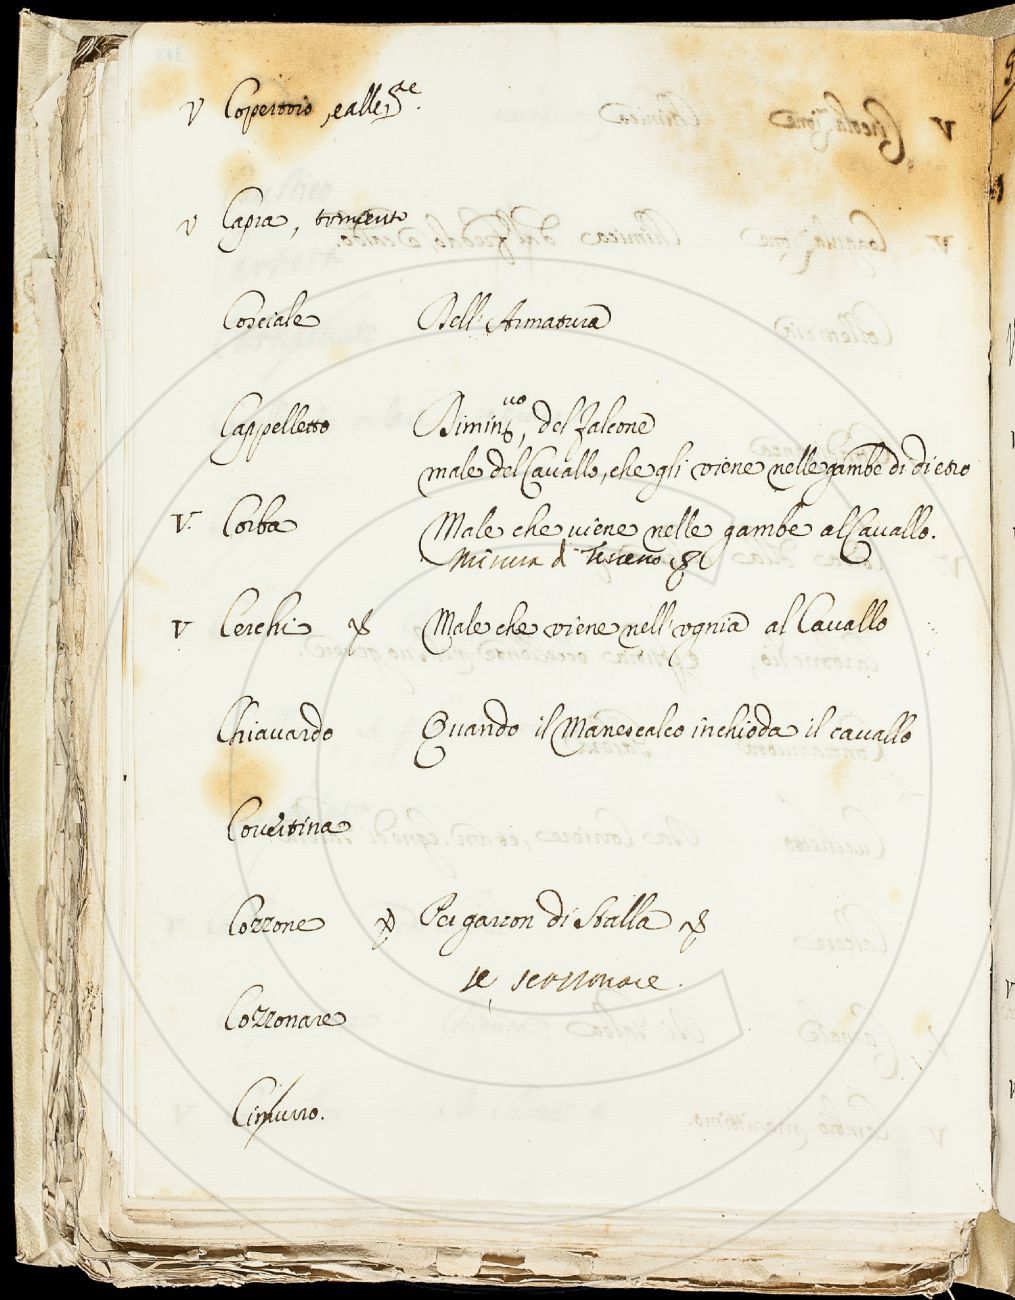 V Copertoio, e alle
V Capra, tormento
Cosciale Dell'Armatura
Cappelletto Dimin.uo, del falcone
male del Cavallo, che gli viene nelle gambe di dietro
V. Corba Male che uiene nelle gambe al Cavallo.
Misura di
V Cerchi Male che viene nell'vgnia al Cavallo
Chiauardo Quando il Manescalco inchioda il cavallo
Couertina
Cozzone Per garzon di stalla
e scozzonare.
Cozzonare
Cimurro.